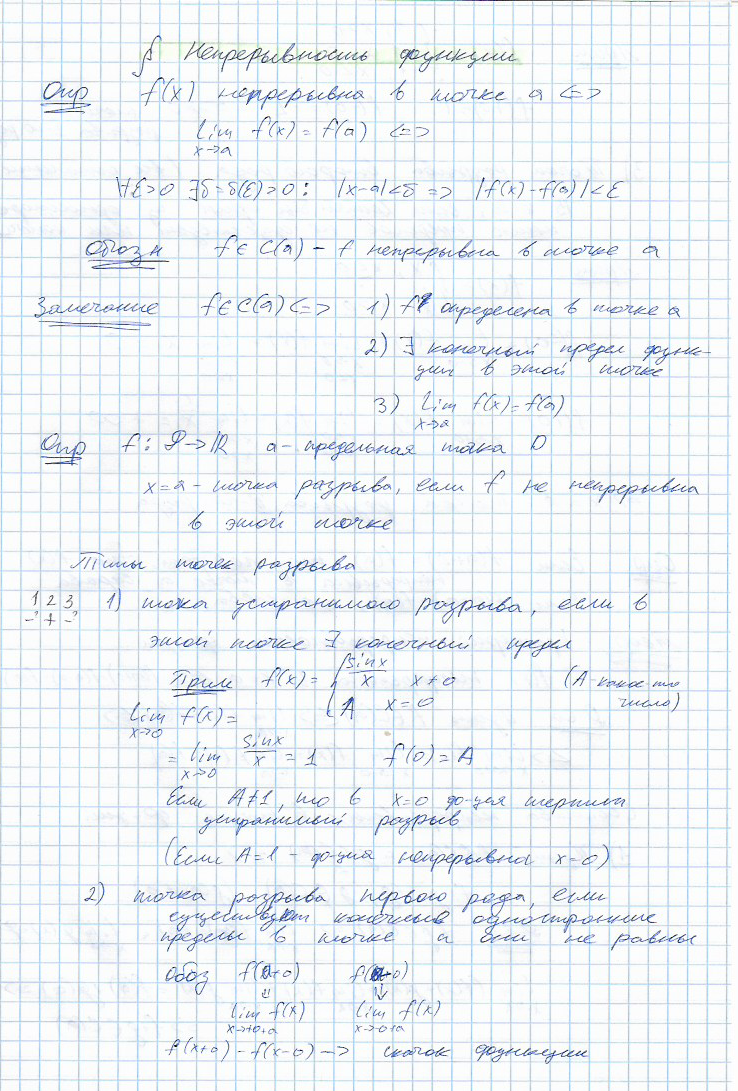 § Непрерывность функции
Опр f(x) непрерывна в точке a <=>
lim f(x) = f(a) <=>
x→a
∀ε>0 ∃δ=δ(ε)>0: |x-a|<δ => |f(x)-f(a)|<ε
Обозн f∈C(a) – f непрерывна в точке a
Замечание f∈C(a) <=> 1) f определена в точке a
2) ∃ конечный предел функ-
ции в этой точке
3) lim f(x)=f(a)
x→a
Опр f: D→ℝ a – предельная точка D
x=a – точка разрыва, если f не непрерывна
в этой точке
Типы точек разрыва
1 2 3 1) точка устранимого разрыва, если в
-? + -? этой точке ∃ конечный предел
Прим f(x) = { sinx/x x≠0 (A какое-то
A x=0 число)
lim f(x)=
x→0
= lim sinx/x = 1 f(0)=A
x→0
Если A≠1, то в x=0 ф-ция терпит
устранимый разрыв
(Если A=1 – ф-ция непрерывна x=0)
2) точка разрыва первого рода, если
существуют конечные односторонние
пределы в точке a они не равны
Обоз f(a+0) f(a-0)
⇓ ⇓
lim f(x) lim f(x)
f(x+0) – f(x-0) –> скачок функции